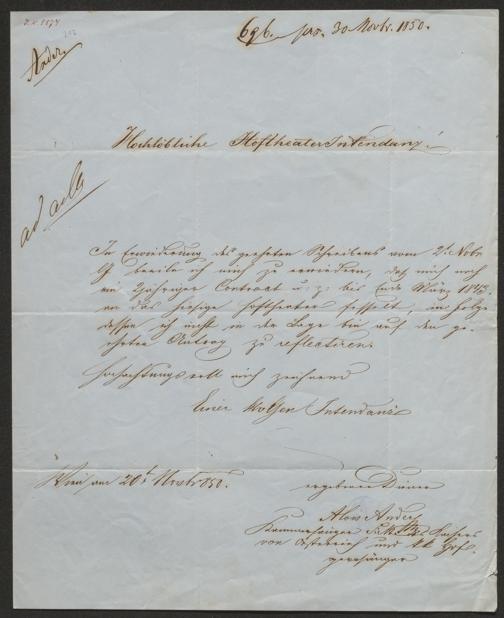 696. prs. 30 Novbr. 1850.
Ander
Hochlöbliche Hoftheater Intendanz!
ad acta
In Erwiederung des geehrten Schreibens vom 2t. Nobr
beeile ich mich zu erwiedern, daß mich noch
ein 2jähriger Contract u. z. bis Ende März
an das hiesige Hoftheater fesselt, in Folge
dessen ich nicht in der Lage bin auf den ge-
ehrten Antrag zu reflectiren.
Hochachtungsvoll mich zeichnend
Einer Intendanz
Wien am 26t. Novbr 850.
ergebener Diener
Alois Ander
Kammersänger Sr. Mj. des Kaisers
von Österreich und kk Hof-
opernsänger